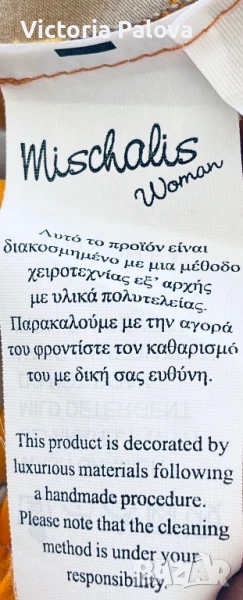 Victoria Palova
Mischalis
Woman
Αυτό το προϊόν είναι
διακοσμημένο με μια μέθοδο
χειροτεχνίας εξ’ αρχής
με υλικά πολυτελείας.
Παρακαλούμε με την αγορά
του φροντίστε τον καθαρισμό
του με δική σας ευθύνη.
This product is decorated by
luxurious materials following
a handmade procedure.
Please note that the cleaning
method is under your
responsibility.
BAZAR